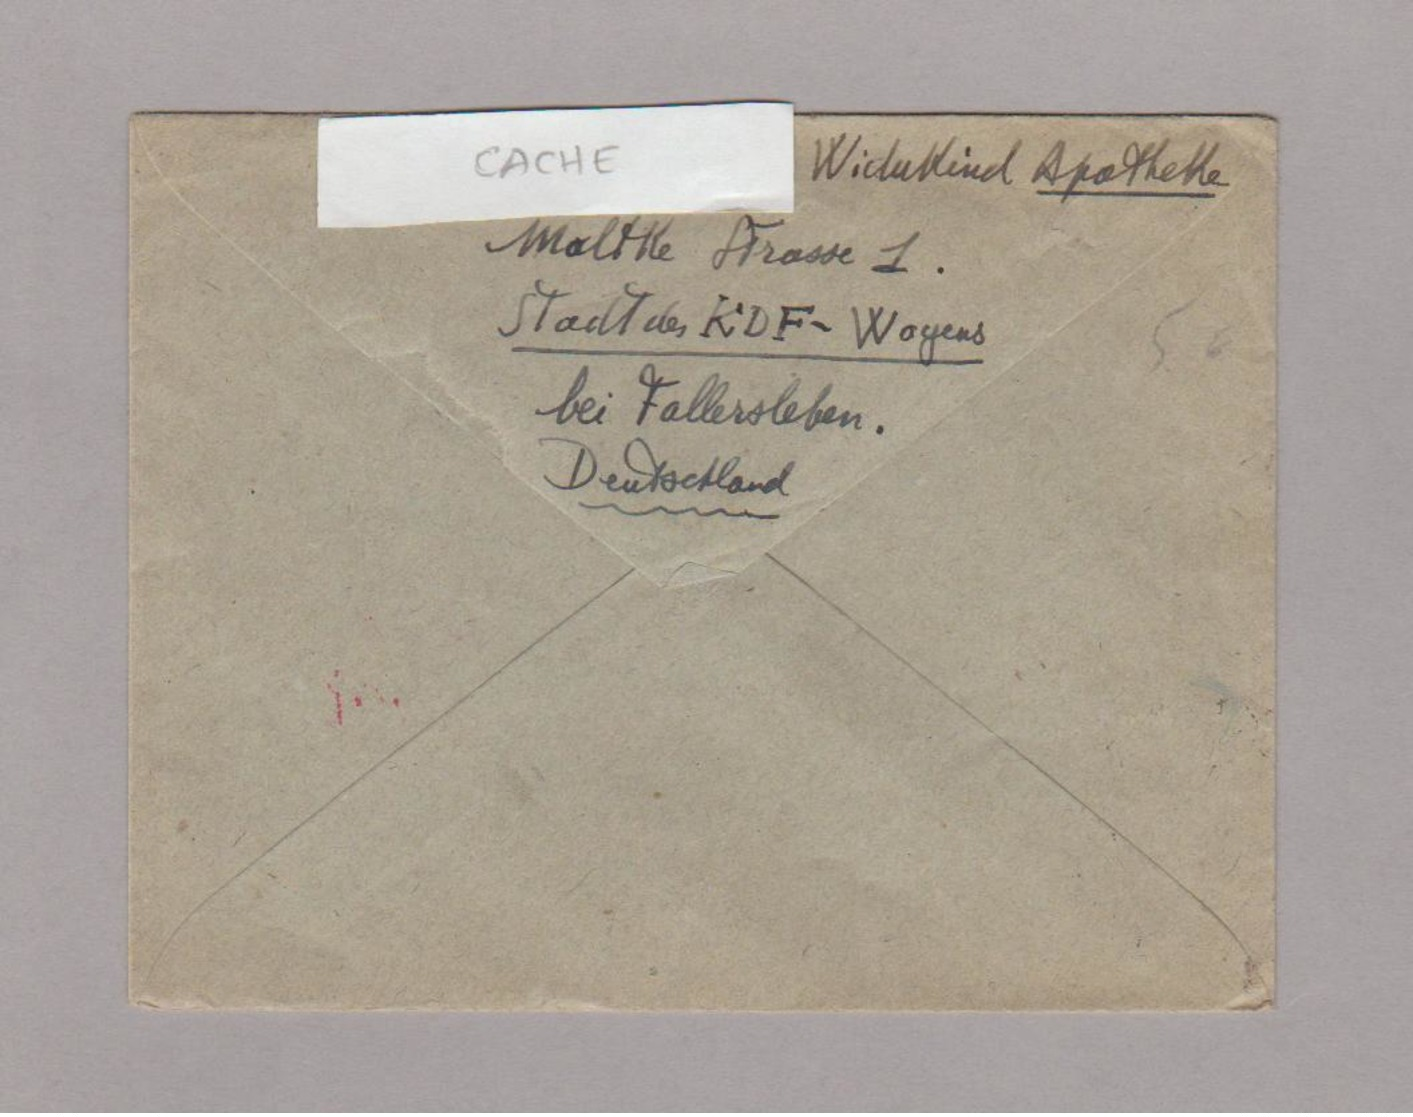 CACHE
Widukind Apotheke
Moltke Strasse 1.
Stadt des KDF - Wagens
bei Fallersleben.
Deutschland